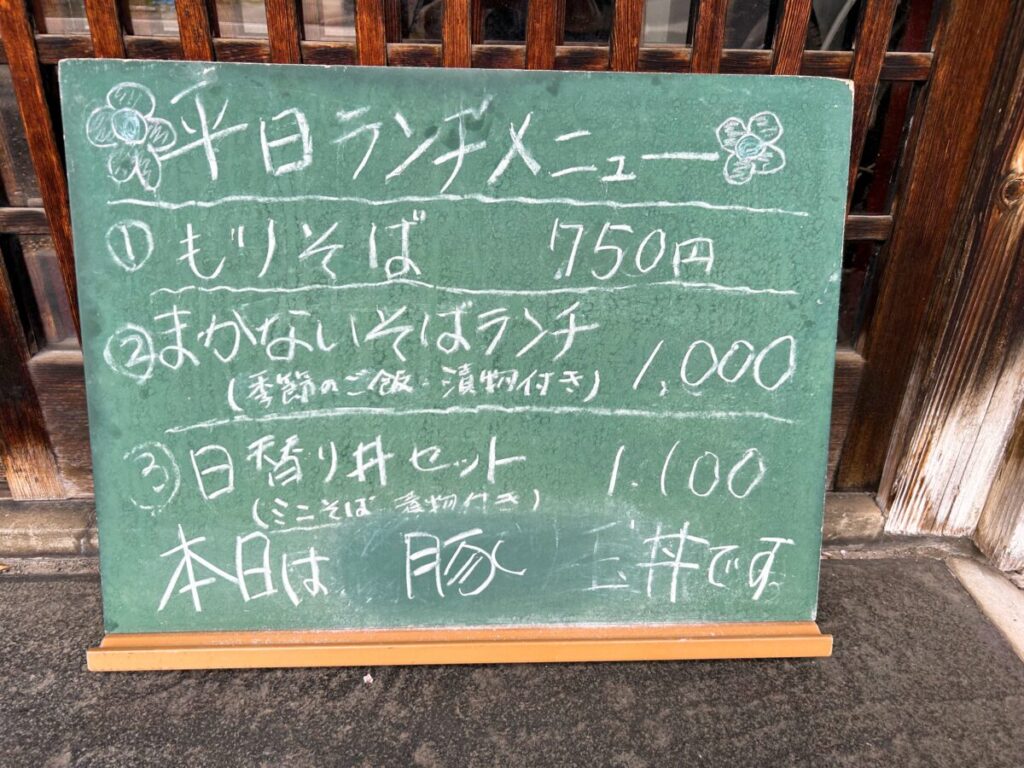 平日ランチメニュー
① もりそば 750円
② まかないそばランチ 1,000
(季節のご飯・漬物付き)
③ 日替り丼セット 1,100
(ミニそば 漬物付き)
本日は 豚 玉丼です